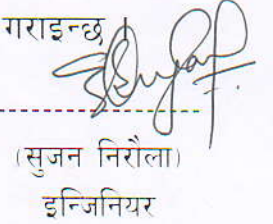 गराइन्छ
(सुजन निरौला)
इन्जिनियर